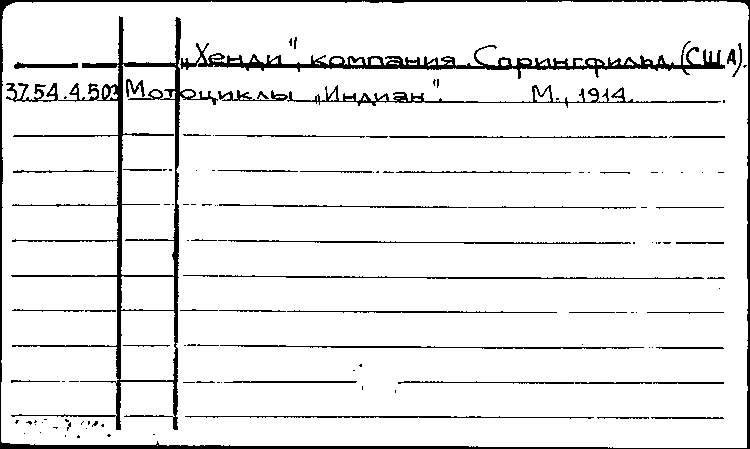 „Хенди", компания. Спрингфильд (США).
37.54.4.503 Мотоциклы „Индиан". М., 1914.